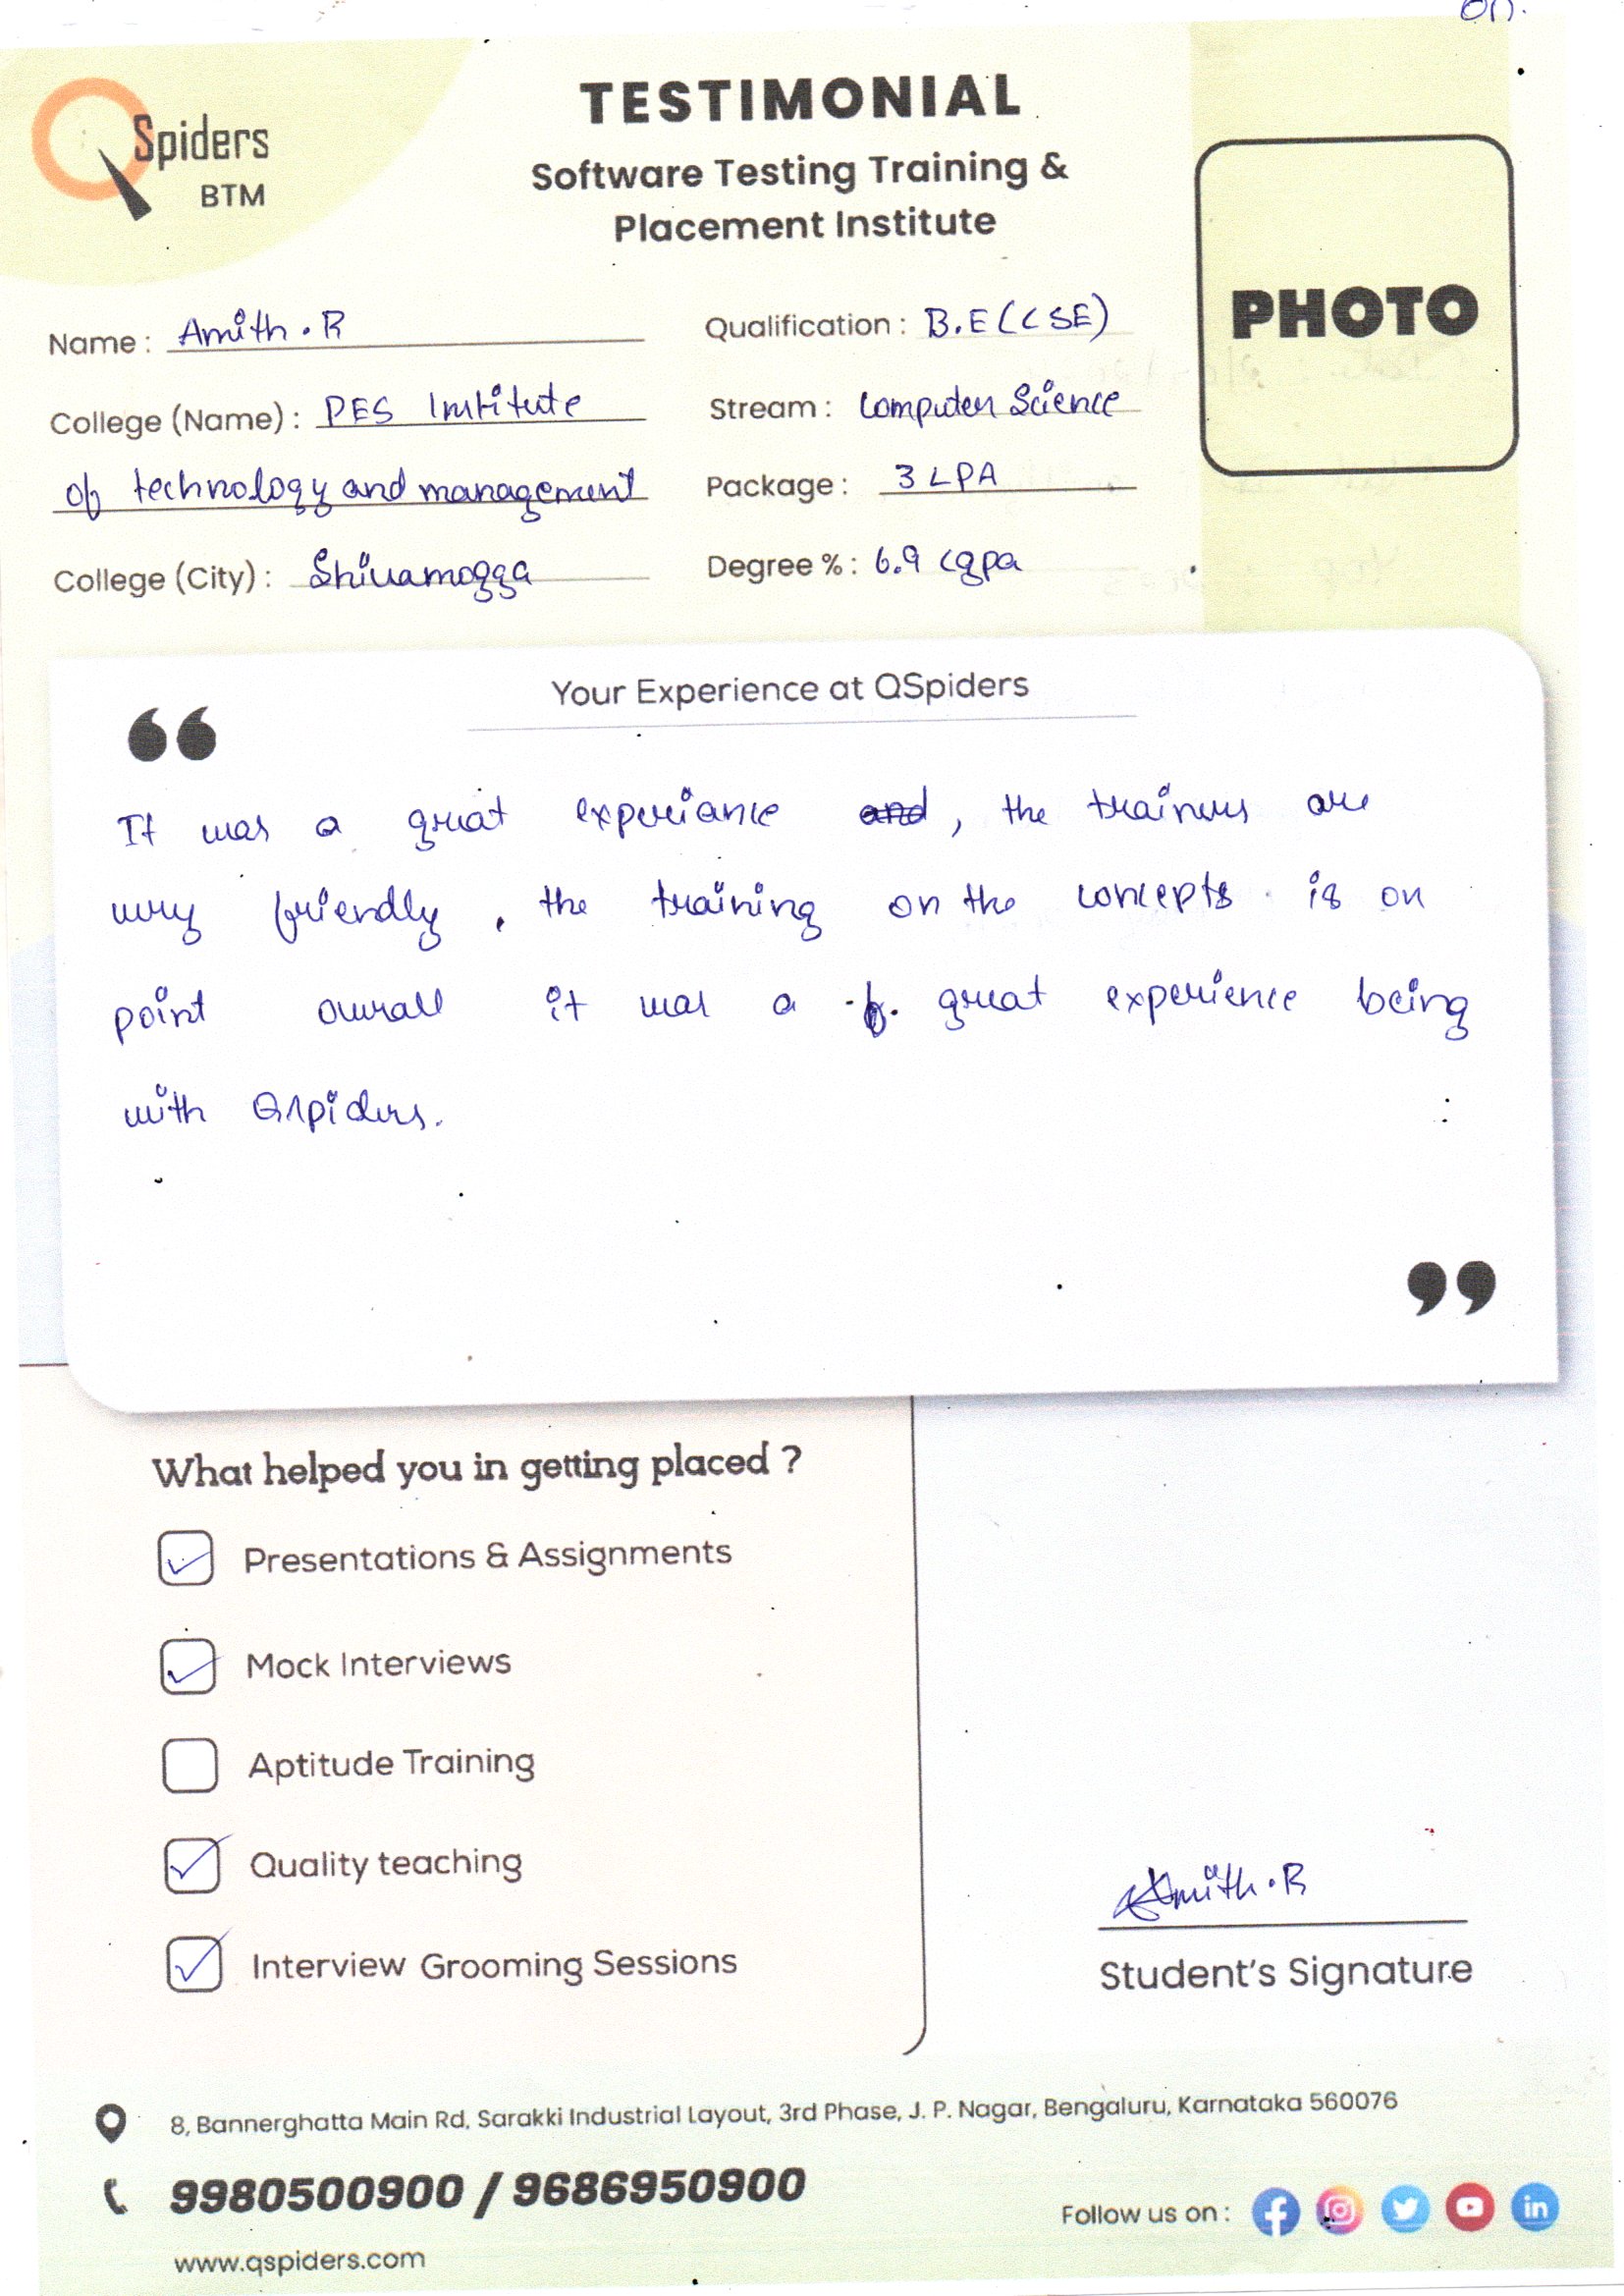 on.
QSpiders
BTM
TESTIMONIAL
Software Testing Training &
Placement Institute
PHOTO
Name : Amith . R
Qualification : B.E (CSE)
College (Name) : PES Institute
of technology and management
Stream : Computer Science
Package : 3 LPA
College (City) : Shivamogga
Degree % : 6.9 cgpa
Your Experience at QSpiders
It was a great experiance , the trainers are
very friendly , the training on the concepts is on
point overall it was a great experience being
with Qspiders.
What helped you in getting placed ?
Presentations & Assignments
Mock Interviews
Aptitude Training
Quality teaching
Interview Grooming Sessions
Amith . R
Student's Signature
8, Bannerghatta Main Rd, Sarakki Industrial Layout, 3rd Phase, J. P. Nagar, Bengaluru, Karnataka 560076
9980500900 / 9686950900
www.qspiders.com
Follow us on :